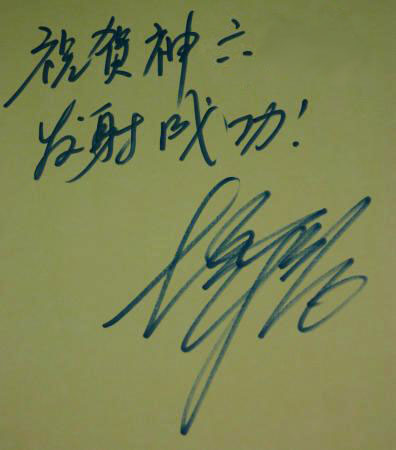 祝贺神六
发射成功!